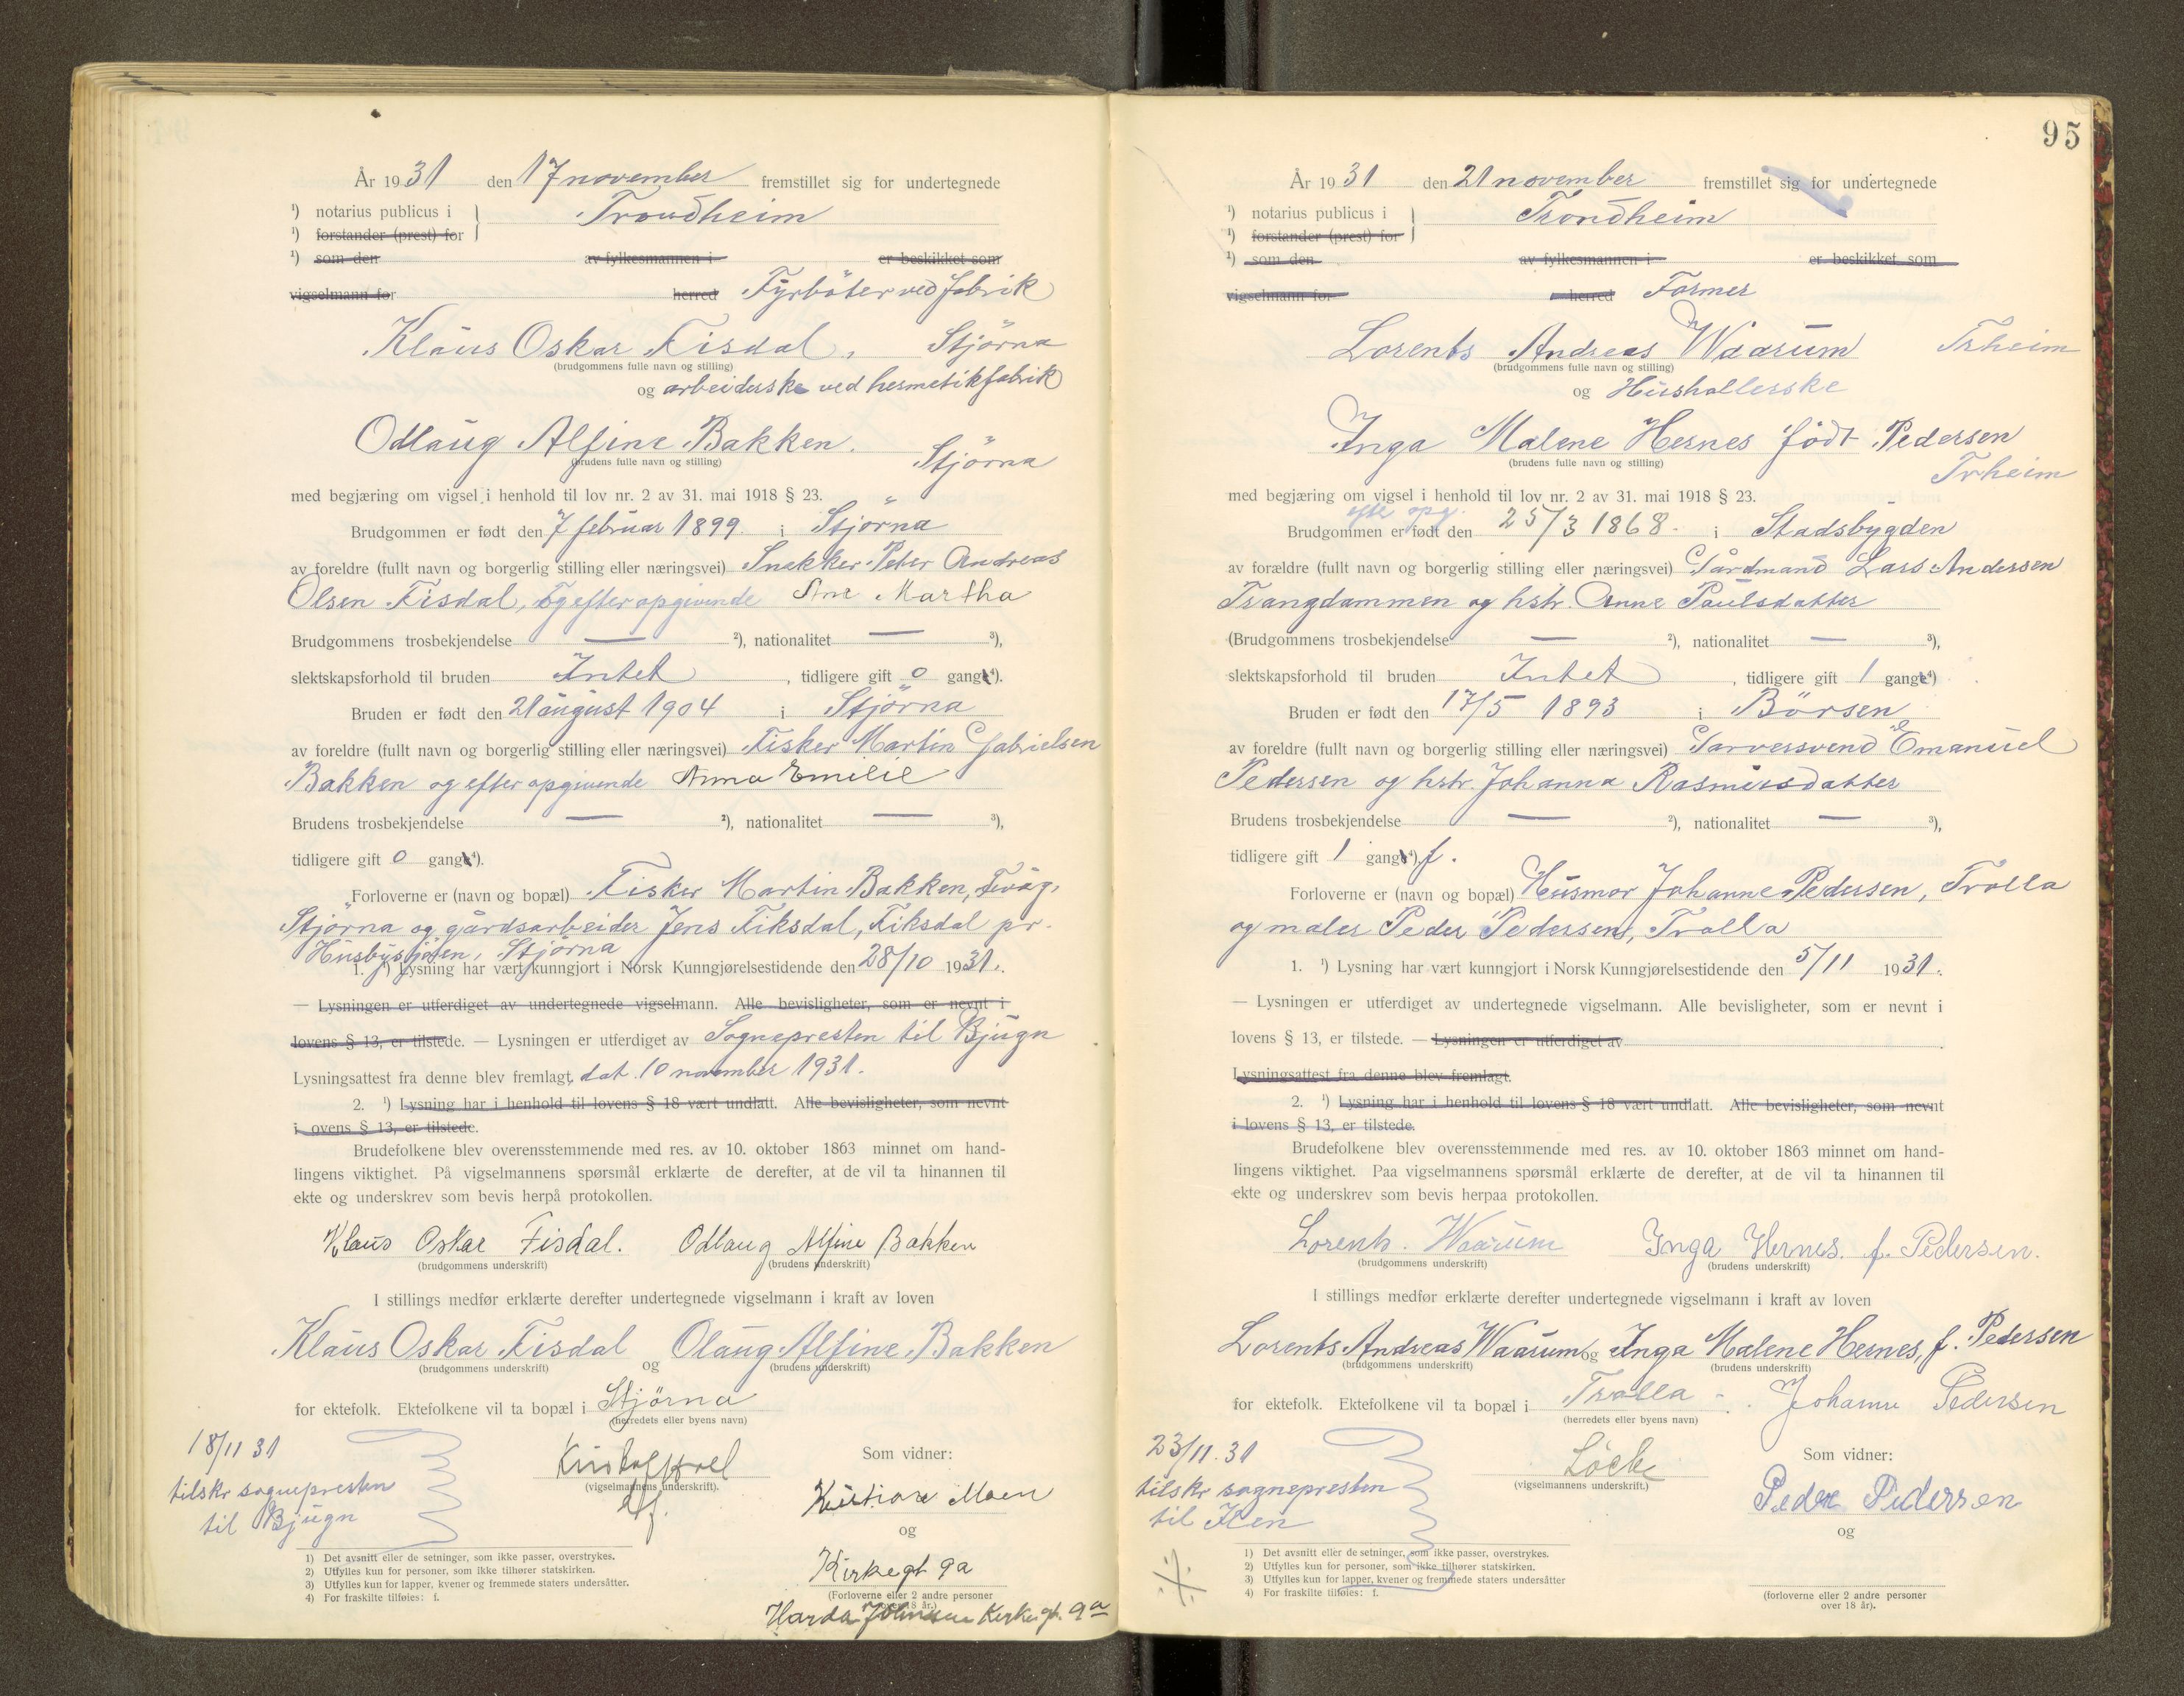 År 1931 den 17 november fremstillet sig for undertegnede
¹) notarius publicus i Trondheim
¹) forstander (prest) for
¹) som den av fylkesmannen i er beskikket som
vigselmann for herred Fyrböter ved fabrik
Klaus Oskar Fisdal, Stjörna
(brudgommens fulle navn og stilling)
og arbeiderske ved hermetikfabrik
Odlaug Alfine Bakken.
(brudens fulle navn og stilling)
Stjörna
med begjæring om vigsel i henhold til lov nr. 2 av 31. mai 1918 § 23.
Brudgommen er født den 7 februar 1899 i Stjörna
av foreldre (fullt navn og borgerlig stilling eller næringsvei) Snekker Peter Andreas
Olsen Fisdal, og efter opgivende Ane Martha
Brudgommens trosbekjendelse — ²), nationalitet — ³),
slektskapsforhold til bruden Intet, tidligere gift 0 gang⁴).
Bruden er født den 21 august 1904 i Stjörna
av foreldre (fullt navn og borgerlig stilling eller næringsvei) Fisker Martin Gabrielsen
Bakken og efter opgivende Anna Emilie
Brudens trosbekjendelse — ²), nationalitet — ³),
tidligere gift 0 gang⁴).
Forloverne er (navn og bopæl) Fisker Martin Bakken, Fevåg,
Stjörna og gårdsarbeider Jens Fiksdal, Fiksdal pr.
Husbysjöen, Stjörna
1. ¹) Lysning har vært kunngjort i Norsk Kunngjørelsestidende den 28/10 1931.
— Lysningen er utferdiget av undertegnede vigselmann. Alle bevisligheter, som er nevnt i
lovens § 13, er tilstede. — Lysningen er utferdiget av Sognepresten til Bjugn
Lysningsattest fra denne blev fremlagt, dat. 10 november 1931.
2. ¹) Lysning har i henhold til lovens § 18 vært undlatt. Alle bevisligheter, som nevnt
i lovens § 13, er tilstede.
Brudefolkene blev overensstemmende med res. av 10. oktober 1863 minnet om hand-
lingens viktighet. På vigselmannens spørsmål erklærte de derefter, at de vil ta hinannen til
ekte og underskrev som bevis herpå protokollen.
Klaus Oskar Fisdal. Odlaug Alfine Bakken
(brudgommens underskrift) (brudens underskrift)
I stillings medfør erklærte derefter undertegnede vigselmann i kraft av loven
Klaus Oskar Fisdal og Olaug Alfine Bakken
(brudgommens underskrift) (brudens underskrift)
for ektefolk. Ektefolkene vil ta bopæl i Stjörna
(herredets eller byens navn)
18/11 31
tilskr sognepresten
til Bjugn
(vigselmannens underskrift).
Som vidner:
Kristiane Moen
og
Kirkegt 9a
(Forloverne eller 2 andre personer
over 18 år.)
Harda Johnsen Kirkegt. 9a
1) Det avsnitt eller de setninger, som ikke passer, overstrykes.
2) Utfylles kun for personer, som ikke tilhører statskirken.
3) Utfylles kun for lapper, kvener og fremmede staters undersåtter.
4) For fraskilte tilføies: f.
95
År 1931 den 21 november fremstillet sig for undertegnede
¹) notarius publicus i Trondheim
¹) forstander (prest) for
¹) som den av fylkesmannen i er beskikket som
vigselmann for herred Former
Lorents Andreas Waarum Trheim
(brudgommens fulle navn og stilling)
og Husholderske
Inga Malene Hernes födt Pedersen
(brudens fulle navn og stilling)
Trheim
med begjæring om vigsel i henhold til lov nr. 2 av 31. mai 1918 § 23.
efter opg.
Brudgommen er født den 25/3 1868 i Stadsbygden
av forældre (fullt navn og borgerlig stilling eller næringsvei) Gårdmand Lars Andersen
Trangdammen og hstr. Anne Paulsdatter
(Brudgommens trosbekjendelse — ²), nationalitet — ³),
slektskapsforhold til bruden Intet, tidligere gift 1 gang⁴)
Bruden er født den 17/5 1893 i Börsen
av foreldre (fullt navn og borgerlig stilling eller næringsvei) Garversvend Emanuel
Pedersen og hstr. Johanna Rasmusdatter
Brudens trosbekjendelse — ²), nationalitet — ³),
tidligere gift 1 gang⁴) f.
Forloverne er (navn og bopæl) Husmor Johanne Pedersen, Trolla
og maler Peder Pedersen, Trolla
1. ¹) Lysning har vært kunngjort i Norsk Kunngjørelsestidende den 5/11 1931.
— Lysningen er utferdiget av undertegnede vigselmann. Alle bevisligheter, som er nevnt i
lovens § 13, er tilstede. — Lysningen er utferdiget av
Lysningsattest fra denne blev fremlagt.
2. ¹) Lysning har i henhold til lovens § 18 vært undlatt. Alle bevisligheter, som nevnt
i lovens § 13, er tilstede.
Brudefolkene blev overensstemmende med res. av 10. oktober 1863 minnet om hand-
lingens viktighet. Paa vigselmannens spørsmål erklærte de derefter, at de vil ta hinannen til
ekte og underskrev som bevis herpaa protokollen.
Lorents. Waarum Inga Hernes. f. Pedersen.
(brudgommens underskrift) (brudens underskrift)
I stillings medfør erklærte derefter undertegnede vigselmann i kraft av loven
Lorents Andreas Waarum og Inga Malene Hernes, f. Pedersen
(brudgommens underskrift) (brudens underskrift)
for ektefolk. Ektefolkene vil ta bopæl i Trolla
(herredets eller byens navn)
Johanne Pedersen
23/11.31
tilskr sognepresten
til Ilen
(vigselmannens underskrift.)
Som vidner:
Peder Pedersen
og
(forloverne eller 2 andre personer
over 18 år).
1) Det avsnitt eller de setninger, som ikke passer, overstrykes.
2) Utfylles kun for personer, som ikke tilhører statskirken.
3) Utfylles kun for lapper, kvener og fremmede staters undersåtter
4) For fraskilte tilføies: f.